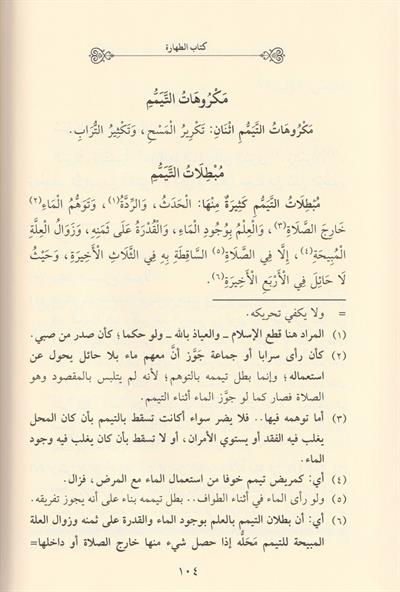 كتاب الطهارة
مَكْرُوهَاتُ التَّيَمُّمِ
مَكْرُوهَاتُ التَّيَمُّمِ اثْنَانِ: تَكْرِيرُ الْمَسْحِ، وَتَكْثِيرُ التُّرَابِ.
مُبْطِلَاتُ التَّيَمُّمِ
مُبْطِلَاتُ التَّيَمُّمِ كَثِيرَةٌ مِنْهَا: الْحَدَثُ، وَالرِّدَّةُ(١)، وَتَوَهُّمُ الْمَاءِ(٢)
خَارِجَ الصَّلَاةِ(٣)، وَالْعِلْمُ بِوُجُودِ الْمَاءِ، وَالْقُدْرَةُ عَلَى ثَمَنِهِ، وَزَوَالُ الْعِلَّةِ
الْمُبِيحَةِ(٤)، إِلَّا فِي الصَّلَاةِ(٥) السَّاقِطَةِ بِهِ فِي الثَّلَاثِ الْأَخِيرَةِ، وَحَيْثُ
لَا حَائِلَ فِي الْأَرْبَعِ الْأَخِيرَةِ(٦).
= ولا يكفي تحريكه.
(١) المراد هنا قطع الإسلام ــ والعياذ بالله ــ ولو حكما؛ كأن صدر من صبي.
(٢) كأن رأى سرابا أو جماعة جَوَّز أنَّ معهم ماء بلا حائل يحول عن
استعماله؛ وإنما بطل تيممه بالتوهم؛ لأنه لم يتلبس بالمقصود وهو
الصلاة فصار كما لو جوَّز الماء أثناء التيمم.
(٣) أما توهمه فيها.. فلا يضر سواء أكانت تسقط بالتيمم بأن كان المحل
يغلب فيه الفقد أو يستوي الأمران، أو لا تسقط بأن كان يغلب فيه وجود
الماء.
(٤) أي: كمريض تيمم خوفا من استعمال الماء مع المرض، فزال.
(٥) ولو رأى الماء في أثناء الطواف.. بطل تيممه بناء على أنه يجوز تفريقه.
(٦) أي: أن بطلان التيمم بالعلم بوجود الماء والقدرة على ثمنه وزوال العلة
المبيحة للتيمم مَحَلُّه إذا حصل شيء منها خارج الصلاة أو داخلها=
١٠٤